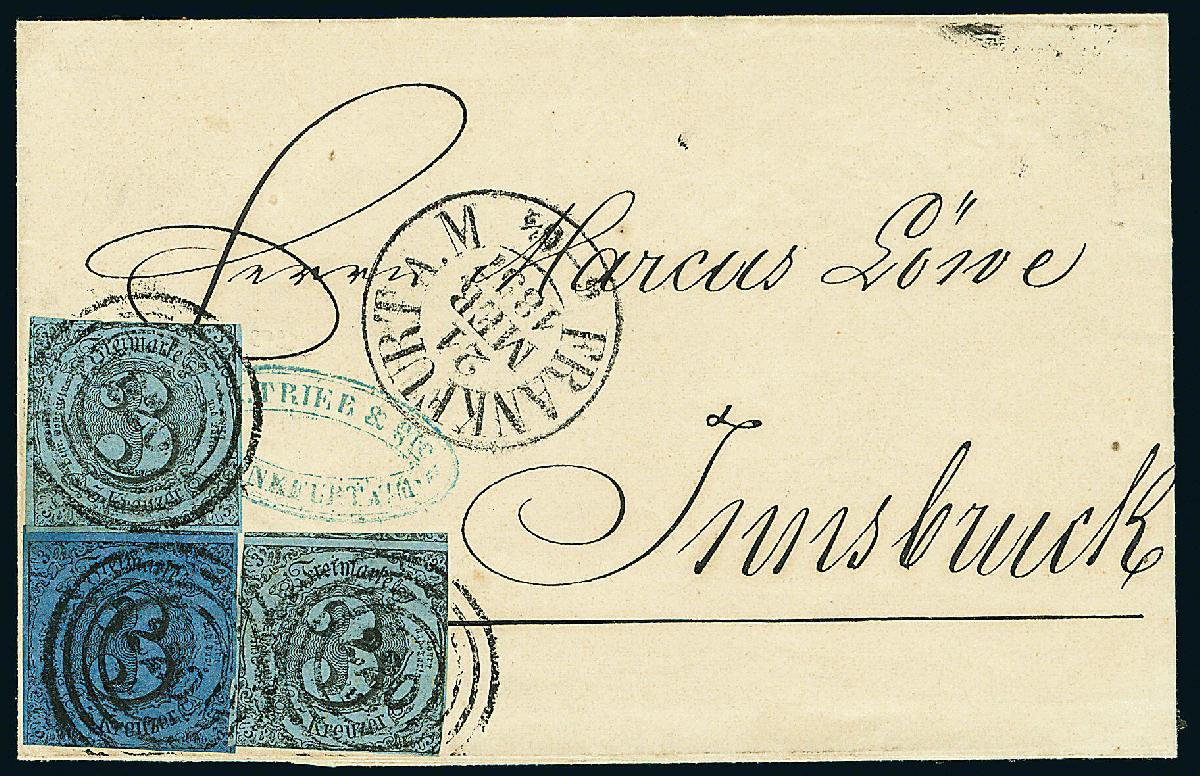 Herrn Marcus Löwe
Innsbruck
FRANKFURT A. M.
21
MERZ
TRIER &
Freimarke
3
Kreuzer
Freimarke
3
Kreuzer
Freimarke
3
Kreuzer